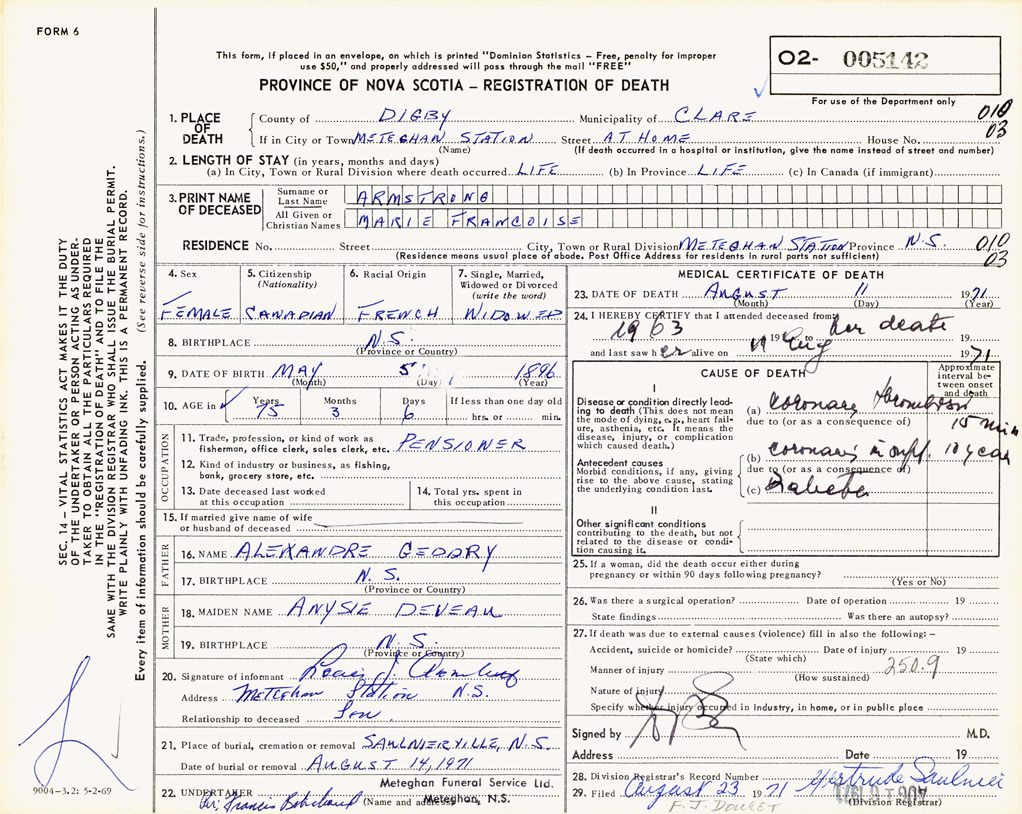 FORM 6
This form, if placed in an envelope, on which is printed "Dominion Statistics – Free, penalty for improper
use $50," and properly addressed will pass through the mail "FREE"
PROVINCE OF NOVA SCOTIA – REGISTRATION OF DEATH
02- 005142
For use of the Department only
1. PLACE OF DEATH
County of DIGBY Municipality of CLARE 010
If in City or Town METEGHAN STATION Street AT HOME House No. 03
(Name) (If death occurred in a hospital or institution, give the name instead of street and number)
2. LENGTH OF STAY (in years, months and days)
(a) In City, Town or Rural Division where death occurred LIFE (b) In Province LIFE (c) In Canada (if immigrant)
3. PRINT NAME OF DECEASED
Surname or Last Name ARMSTRONG
All Given or Christian Names MARIE FRANCOISE
RESIDENCE No. Street City, Town or Rural Division METEGHAN STATION Province N.S. 010
(Residence means usual place of abode. Post Office Address for residents in rural parts not sufficient) 03
4. Sex
FEMALE
5. Citizenship
(Nationality)
CANADIAN
6. Racial Origin
FRENCH
7. Single, Married,
Widowed or Divorced
(write the word)
WIDOWED
8. BIRTHPLACE N.S.
(Province or Country)
9. DATE OF BIRTH MAY 5 1896
(Month) (Day) (Year)
10. AGE in Years Months Days If less than one day old
75 3 6 hrs. or min.
OCCUPATION
11. Trade, profession, or kind of work as
fisherman, office clerk, sales clerk, etc. PENSIONER
12. Kind of industry or business, as fishing,
bank, grocery store, etc.
13. Date deceased last worked
at this occupation
14. Total yrs. spent in
this occupation
15. If married give name of wife
or husband of deceased
FATHER
16. NAME ALEXANDRE GEDDRY
17. BIRTHPLACE N. S.
(Province or Country)
MOTHER
18. MAIDEN NAME ANYSIE DEVEAU
19. BIRTHPLACE N.S.
(Province or Country)
20. Signature of informant Louis J. Armstrong
Address Meteghan Station N.S.
Relationship to deceased Son
21. Place of burial, cremation or removal SAULNIERVILLE, N.S.
Date of burial or removal AUGUST 14, 1971
Meteghan Funeral Service Ltd.
22. UNDERTAKER Francis (Name and address) Meteghan, N.S.
9004-3.2: 5-2-69
MEDICAL CERTIFICATE OF DEATH
23. DATE OF DEATH AUGUST 11 1971
(Month) (Day) (Year)
24. I HEREBY CERTIFY that I attended deceased from
1963 19 to her death 19
and last saw her alive on 11 Aug 1971
CAUSE OF DEATH
Approximate
interval be-
tween onset
and death
I
Disease or condition directly lead-
ing to death (This does not mean
the mode of dying, e.g., heart fail-
ure, asthenia, etc. It means the
disease, injury, or complication
which caused death.)
(a) coronary thrombosis
due to (or as a consequence of) 15 min
Antecedent causes
Morbid conditions, if any, giving
rise to the above cause, stating
the underlying condition last.
(b) coronary insuff. 10 year
due to (or as a consequence of)
(c) Diabetes
II
Other significant conditions
contributing to the death, but not
related to the disease or condi-
tion causing it.
25. If a woman, did the death occur either during
pregnancy or within 90 days following pregnancy?
(Yes or No)
26. Was there a surgical operation? Date of operation 19
State findings Was there an autopsy?
27. If death was due to external causes (violence) fill in also the following: –
Accident, suicide or homicide? Date of injury 19
(State which)
Manner of injury 250.9
(How sustained)
Nature of injury
Specify whether injury occurred in industry, in home, or in public place
Signed by M.D.
Address Date 19
28. Division Registrar's Record Number
29. Filed August 23 1971 Gertrude Saulnier
(Division Registrar)
F. J. DOUCET
SEC. 14 – VITAL STATISTICS ACT MAKES IT THE DUTY
OF THE UNDERTAKER OR PERSON ACTING AS UNDER-
TAKER TO OBTAIN ALL THE PARTICULARS REQUIRED
IN THE "REGISTRATION OF DEATH" AND TO FILE THE
SAME WITH THE DIVISION REGISTRAR WHO SHALL ISSUE THE BURIAL PERMIT.
WRITE PLAINLY WITH UNFADING INK. THIS IS A PERMANENT RECORD.
Every item of information should be carefully supplied. (See reverse side for instructions.)